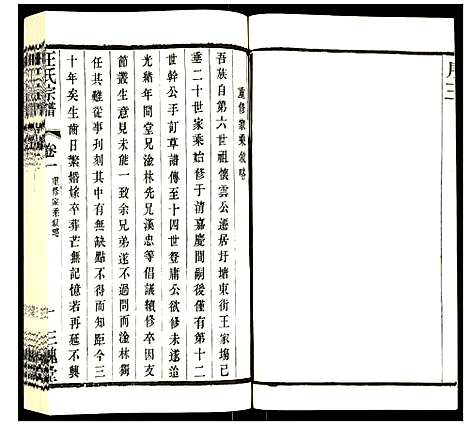 重修家乘叙略
吾族自第六世祖懷雲公遷居圩塘東街王家塲已
垂二十世家乘始修于清嘉慶間嗣後僅有第十二
世幹公手訂草譜傳至十四世登庸公欲修未遂迨
光緒年間堂兄淦林先兄漢忠等倡議續修卒因支
節叢生意見未能一致余兄弟遂不過問而淦林獨
任其難從事刊刻其中有無缺點不得而知距今三
十年矣生齒日繁婚嫁卒葬茫無記憶若再延不興
王氏宗譜
卷一
重修家乘叙略
一
三槐堂